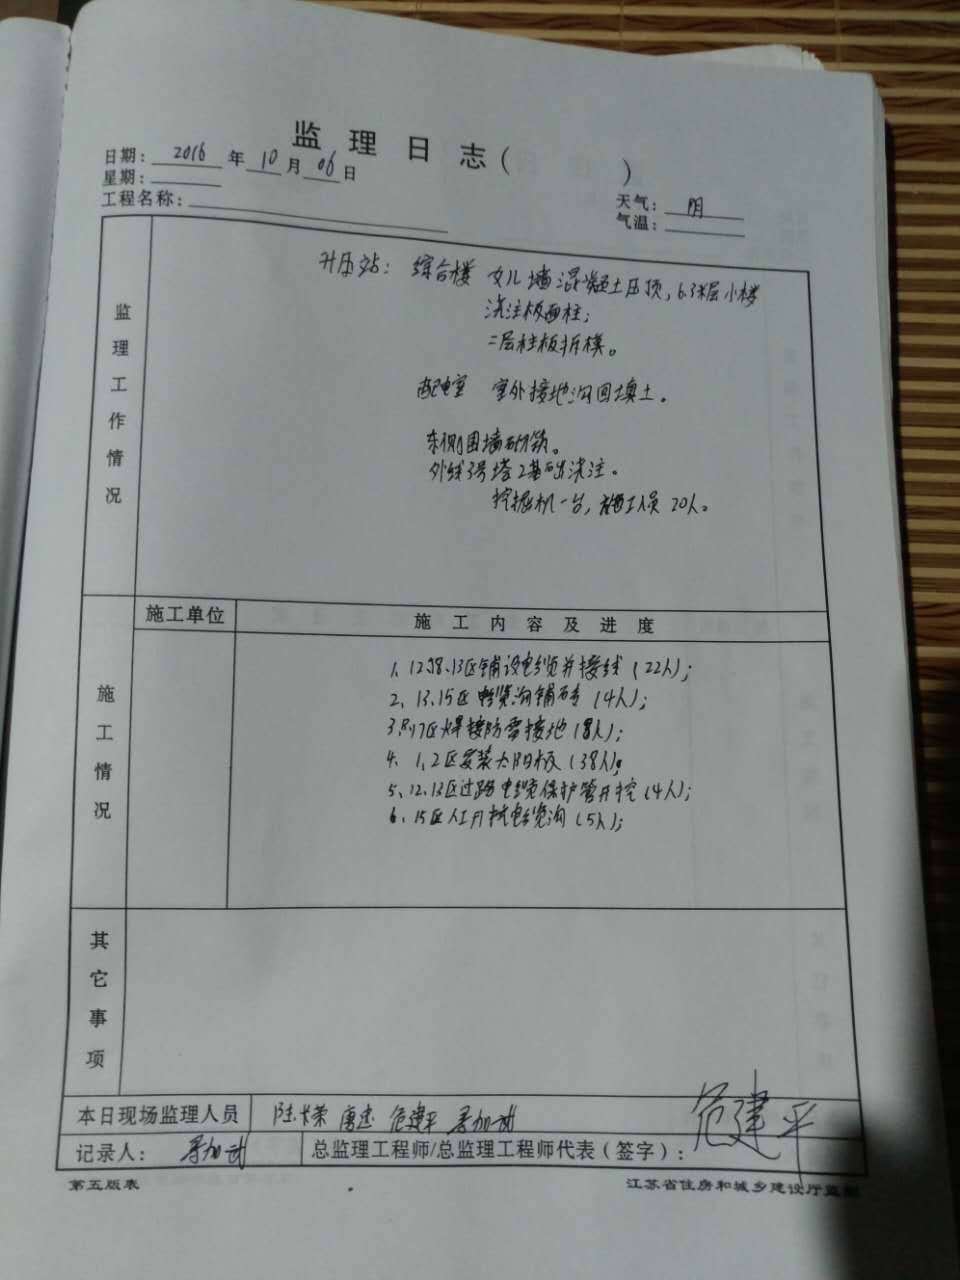 监理日志（ ）
日期：2016年10月06日
星期：
天气：阴
工程名称：
气温：
监理工作情况
升压站：综合楼 女儿墙混凝土压顶，6.3米层小楼
浇注板面柱；
二层柱板拆模。
配电室 室外接地沟回填土。
东侧围墙砌筑。
外线3号塔2基础浇注。
挖掘机一台，施工人员20人。
施工单位 施工内容及进度
施工情况
1、12.18.13区铺设电缆并接线（22人）；
2、13.15区电缆沟铺砖（4人）；
3、8.17区焊接防雷接地（8人）；
4、1、2区安装太阳板（38人）。
5、12.13区过路电缆保护管开挖（4人）；
6、15区人工开挖电缆沟（5人）；
其它事项
本日现场监理人员 危建平
记录人：
总监理工程师/总监理工程师代表（签字）：危建平
第五版表 江苏省住房和城乡建设厅监制